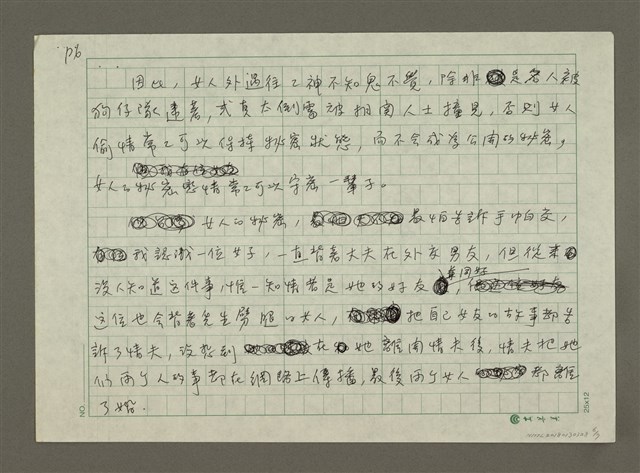 P6
因此，女人外遇往往神不知鬼不覺，除非是名人被
狗仔隊逮著，或真太倒霉被相關人士撞見，否則女人
偷情常常可以保持秘密狀態，而不會成為公開的秘密，
女人的秘密戀情常常可以守密一輩子。
女人的秘密，最怕告訴手帕交，
我認識一位女子，一直背著丈夫在外交男友，但從來
沒人知道這件事，惟一知情者是她的好友，
這位也會背著先生劈腿的女人，把自己女友的故事都告
訴了情夫，沒想到在她離開情夫後，情夫把她
們兩个人的事都在網路上傳播，最後兩个女人都離
了婚．
NO.
25x12